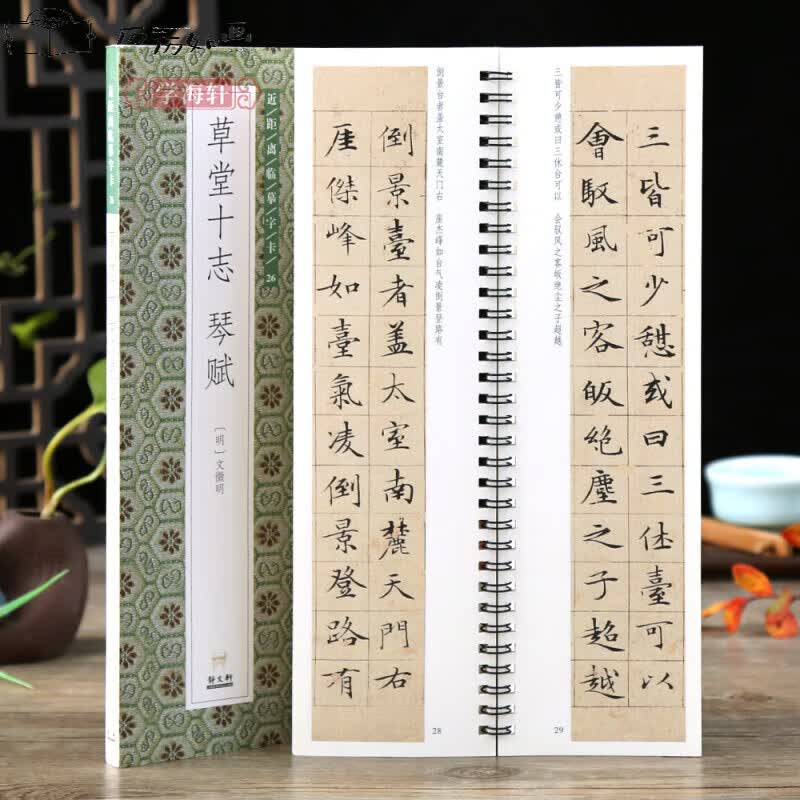 学海轩
近/距/离/临/摹/字/卡/26
草堂十志 琴赋
〔明〕文徵明
静文軒
倒景台者盖太室南麓天门右 崖杰峰如台气凌倒景登路有
倒景臺者盖太室南麓天門右
厓傑峰如臺氣凌倒景登路有
28
三皆可少憩或曰三休台可以 会驭风之客皈绝尘之子超越
三皆可少憩或曰三休臺可以
會馭風之客皈絕塵之子超越
29